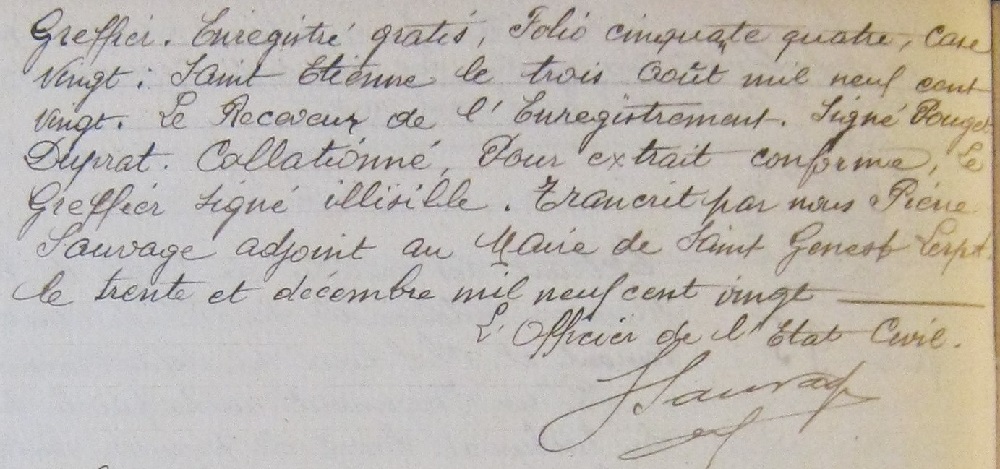 Greffier. Enregistré gratis, Folio cinquate quatre, case
vingt : Saint Etienne le trois Août mil neuf cent
vingt. Le Receveur de l'Enregistrement. Signé Pouget
Duprat. Collationné, Pour extrait conforme, Le
Greffier signé illisible. Trancrit par nous Pierre
Sauvage adjoint au Maire de Saint Genest Lerpt.
le trente et décembre mil neuf cent vingt
L'Officier de l'Etat Civil.
Sauvage